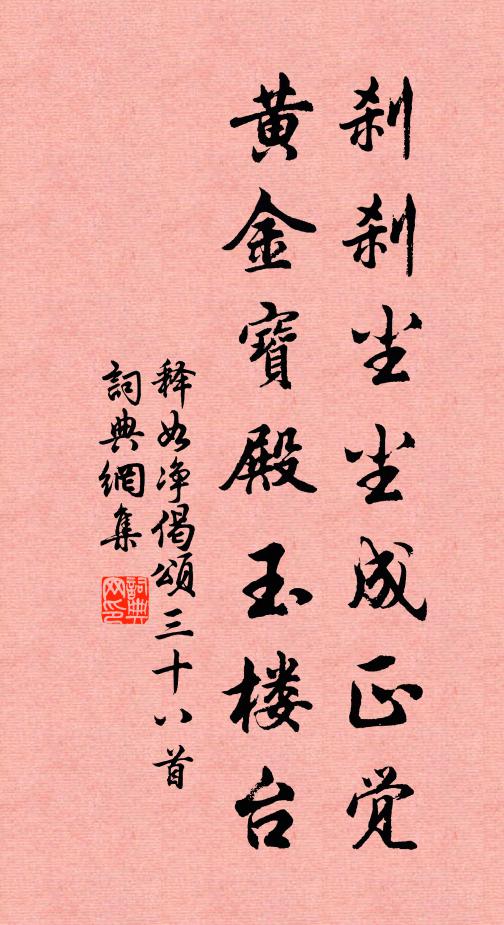 刹刹尘尘成正觉
黄金寶殿玉楼台
释如净偈頌三十八首
詞典網集
詞典
网印